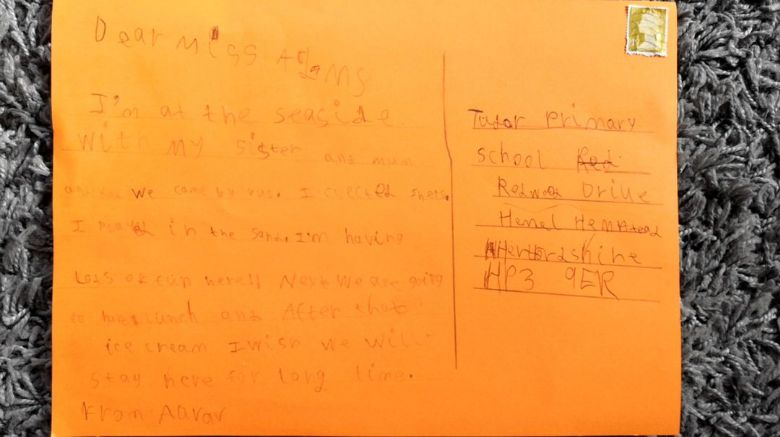 Dear Miss Adams
I'm at the seaside
with my sister and mum
we came by bus. I collected shells.
I played in the sand. I'm having
Lots of fun here!! Next we are going
to have lunch and After that
ice cream I wish we will
stay here for long time.
From Aarav
Tudor Primary
school Red
Redwood Drive
Hemel Hempstead
Hertfordshire
HP3 9ER